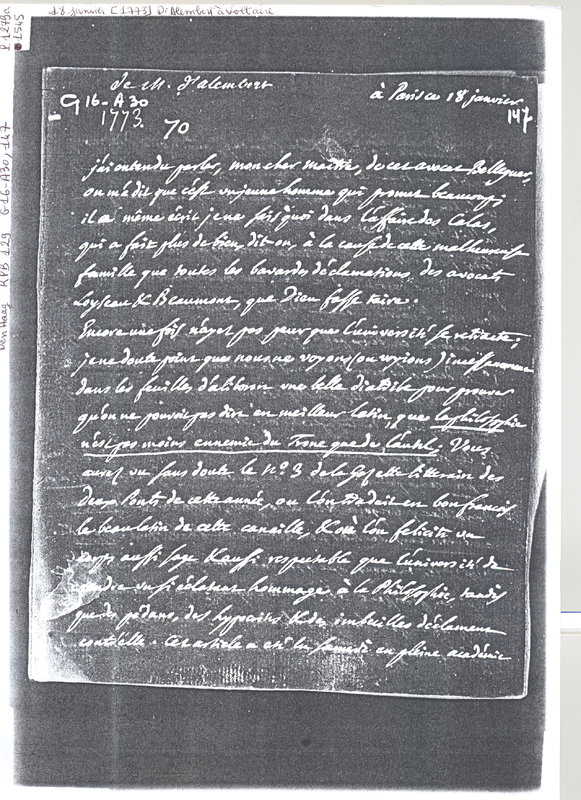 18 janvier [1773] D'Alembert à Voltaire
P. 1279a
1545
Den Haag KPB 129 G16-A30, 147
de M. d'alembert
G16-A30
à Paris ce 18 janvier
1773.
147
70
j'ai entendu parler, mon cher maitre, de cet avocat Belleguer,
on m'a dit que c'est un jeune homme qui promet beaucoup;
il a même écrit je ne sais quoi dans l'affaire des Calas,
qui a fait plus de bien, dit-on, à la cause de cette malheureuse
famille que toutes les bavardes déclamations, des avocats
Loyseau & Beaumont, que Dieu fasse taire.
Encore une fois n'ayez pas peur que l'université se retracte;
je ne doute point que nous ne voyons (ou voyions) incessamment
dans les feuilles d'aliboron une belle diatribe pour prouver
qu'on ne pouvoit pas dire en meilleur latin, que la philosophie
n'est pas moins ennemie du Trone que de l'autel. Vous
aurez vu sans doute le No. 3 de la Gazette litteraire des
Deux Ponts de cette année, ou l'on traduit en bon francois
le beau latin de cette canaille, & où l'on felicite un
corps aussi sage & aussi respectable que l'université de
rendre un si éclatant hommage à la Philosophie, tandis
que des pédans, des hypocrites & des imbecilles déclament
contr'elle. Cet article a été lu samedi en pleine académie